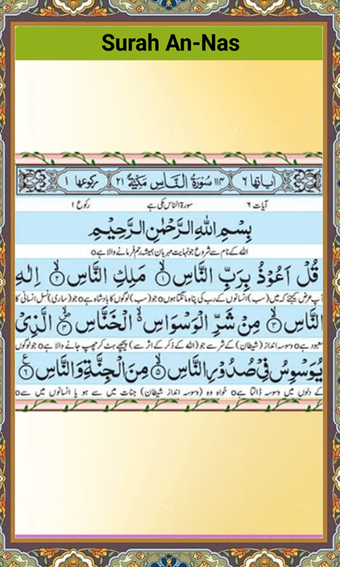 Surah An-Nas
اٰیاتها ٦ ١١٤ سُوْرَةُ النَّاسِ مَكِّیَّةٌ ٢١ رکوعها ١
آیات ۶ سورۃ الناس مکی ہے رکوع ۱
بِسْمِ اللهِ الرَّحْمٰنِ الرَّحِیْمِ
اللہ کے نام سے شروع جو نہایت مہربان ہمیشہ رحم فرمانے والا ہے o
قُلْ اَعُوْذُ بِرَبِّ النَّاسِ ۙ﴿١﴾ مَلِكِ النَّاسِ ۙ﴿٢﴾ اِلٰهِ
آپ عرض کیجئے کہ میں (سب) انسانوں کے رب کی پناہ مانگتا ہوں o جو (سب) لوگوں کا بادشاہ ہے o جو (ساری) نسل انسانی کا
النَّاسِ ۙ﴿٣﴾ مِنْ شَرِّ الْوَسْوَاسِ ۙ الْخَنَّاسِ ۪ۙ﴿٤﴾ الَّذِیْ
معبود ہے o وسوسہ انداز (شیطان) کے شر سے جو (اللہ کے ذکر کے اثر سے) پیچھے ہٹ کر چھپ جانے والا ہے o جو لوگوں
یُوَسْوِسُ فِیْ صُدُوْرِ النَّاسِ ۙ﴿٥﴾ مِنَ الْجِنَّةِ وَ النَّاسِ ﴿٦﴾
کے دلوں میں وسوسہ ڈالتا ہے o خواہ وہ (وسوسہ انداز شیطان) جنات میں سے ہو یا انسانوں میں سے o